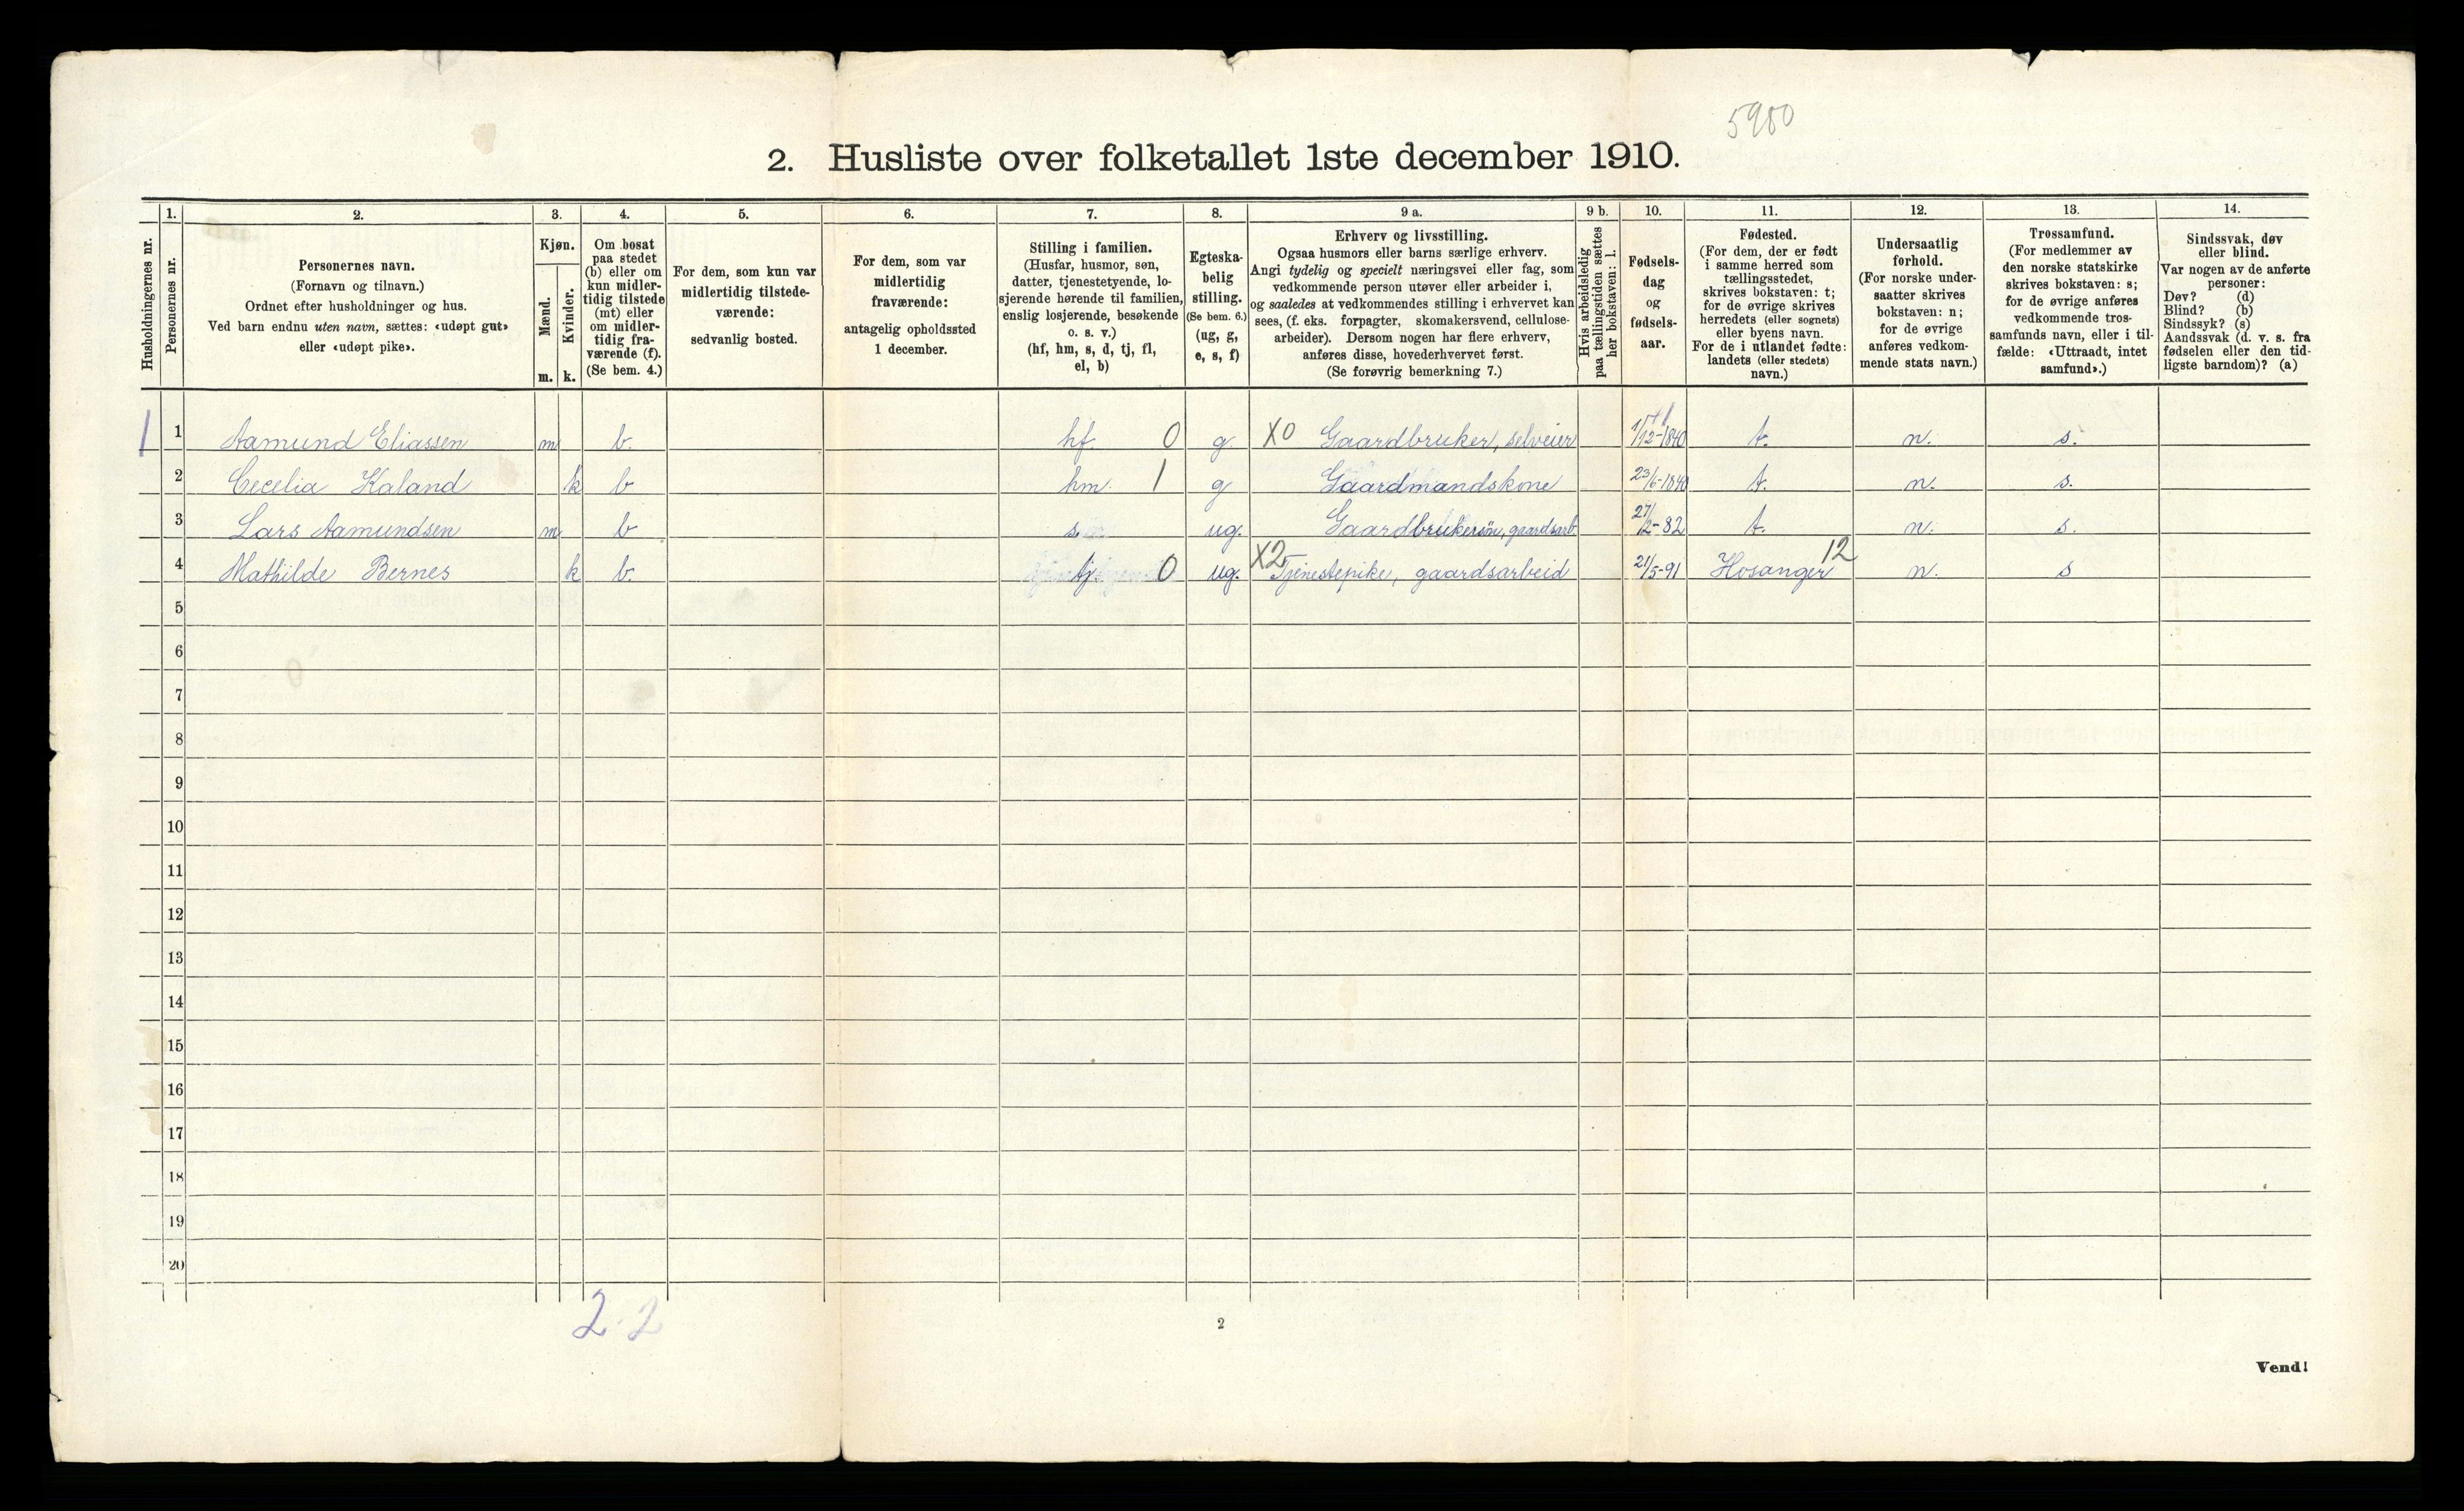 5900
2. Husliste over folketallet 1ste december 1910.
Husholdningernes nr.
1.
Personernes nr.
2.
Personernes navn.
(Fornavn og tilnavn.)
Ordnet efter husholdninger og hus.
Ved barn endnu uten navn, sættes: «udøpt gut»
eller «udøpt pike».
3.
Kjøn.
Mænd.
Kvinder.
m. k.
4.
Om bosat
paa stedet
(b) eller om
kun midler-
tidig tilstede
(mt) eller
om midler-
tidig fra-
værende (f).
(Se bem. 4.)
5.
For dem, som kun var
midlertidig tilstede-
værende:
sedvanlig bosted.
6.
For dem, som var
midlertidig
fraværende:
antagelig opholdssted
1 december.
7.
Stilling i familien.
(Husfar, husmor, søn,
datter, tjenestetyende, lo-
sjerende hørende til familien,
enslig losjerende, besøkende
o. s. v.)
(hf, hm, s, d, tj, fl,
el, b)
8.
Egteska-
belig
stilling.
(Se bem. 6.)
(ug, g,
e, s, f)
9 a.
Erhverv og livsstilling.
Ogsaa husmors eller barns særlige erhverv.
Angi tydelig og specielt næringsvei eller fag, som
vedkommende person utøver eller arbeider i,
og saaledes at vedkommendes stilling i erhvervet kan
sees, (f. eks. forpagter, skomakersvend, cellulose-
arbeider). Dersom nogen har flere erhverv,
anføres disse, hovederhvervet først.
(Se forøvrig bemerkning 7.)
9 b.
Hvis arbeidsledig
paa tællingstiden sættes
her bokstaven: l.
10.
Fødsels-
dag
og
fødsels-
aar.
11.
Fødested.
(For dem, der er født
i samme herred som
tællingsstedet,
skrives bokstaven: t;
for de øvrige skrives
herredets (eller sognets)
eller byens navn.
For de i utlandet fødte:
landets (eller stedets)
navn.)
12.
Undersaatlig
forhold.
(For norske under-
saatter skrives
bokstaven: n;
for de øvrige
anføres vedkom-
mende stats navn.)
13.
Trossamfund.
(For medlemmer av
den norske statskirke
skrives bokstaven: s;
for de øvrige anføres
vedkommende tros-
samfunds navn, eller i til-
fælde: «Uttraadt, intet
samfund».)
14.
Sindssvak, døv
eller blind.
Var nogen av de anførte
personer:
Døv? (d)
Blind? (b)
Sindssyk? (s)
Aandssvak (d. v. s. fra
fødselen eller den tid-
ligste barndom)? (a)
1 1 Aamund Eliassen m b. hf. 0 g. X0 Gaardbruker, selveier 1/12-1840 t. n. s.
2 Cecelia Kaland k b hm. 1 g Gaardmandskone 23/6-1840 t. n. s.
3 Lars Aamundsen m b s. ug. Gaardbrukersøn, gaardsarb. 27/2-82 t. n. s.
4 Mathilde Bernes k b. tj. 0 ug. X2 Tjenestepike, gaardsarbeid 21/5-91 Hosanger 12 n. s
5
6
7
8
9
10
11
12
13
14
15
16
17
18
19
20
2-2
2
Vend!